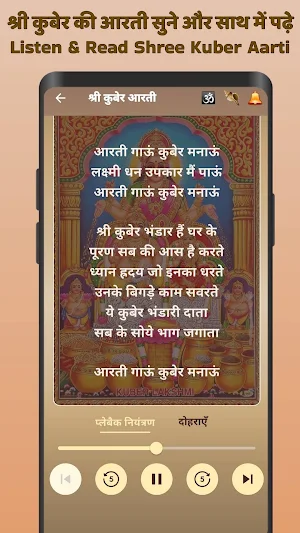 श्री कुबेर की आरती सुने और साथ में पढ़े
Listen & Read Shree Kuber Aarti
श्री कुबेर आरती
आरती गाऊं कुबेर मनाऊं
लक्ष्मी धन उपकार मैं पाऊं
आरती गाऊं कुबेर मनाऊं
श्री कुबेर भंडार हैं घर के
पूरण सब की आस है करते
ध्यान ह्रदय जो इनका धरते
उनके बिगड़े काम सवरते
ये कुबेर भंडारी दाता
सब के सोये भाग जगाता
आरती गाऊं कुबेर मनाऊं
KUBER LAKSHMI
प्लेबैक नियंत्रण
दोहराएँ
5
5